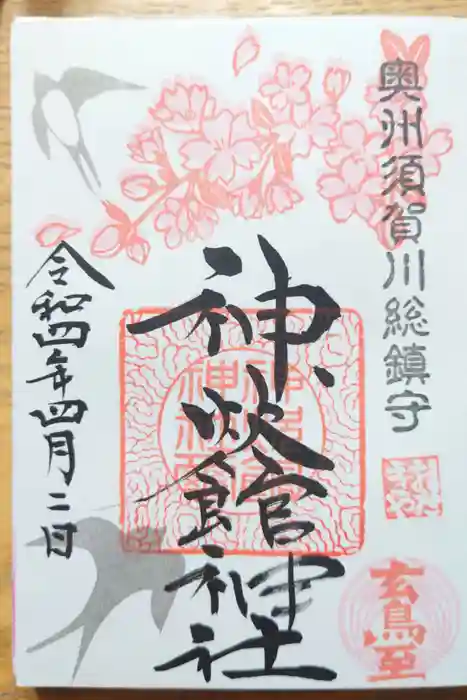 奥州須賀川総鎮守
神炊館神社
令和四年四月二日
玄鳥至